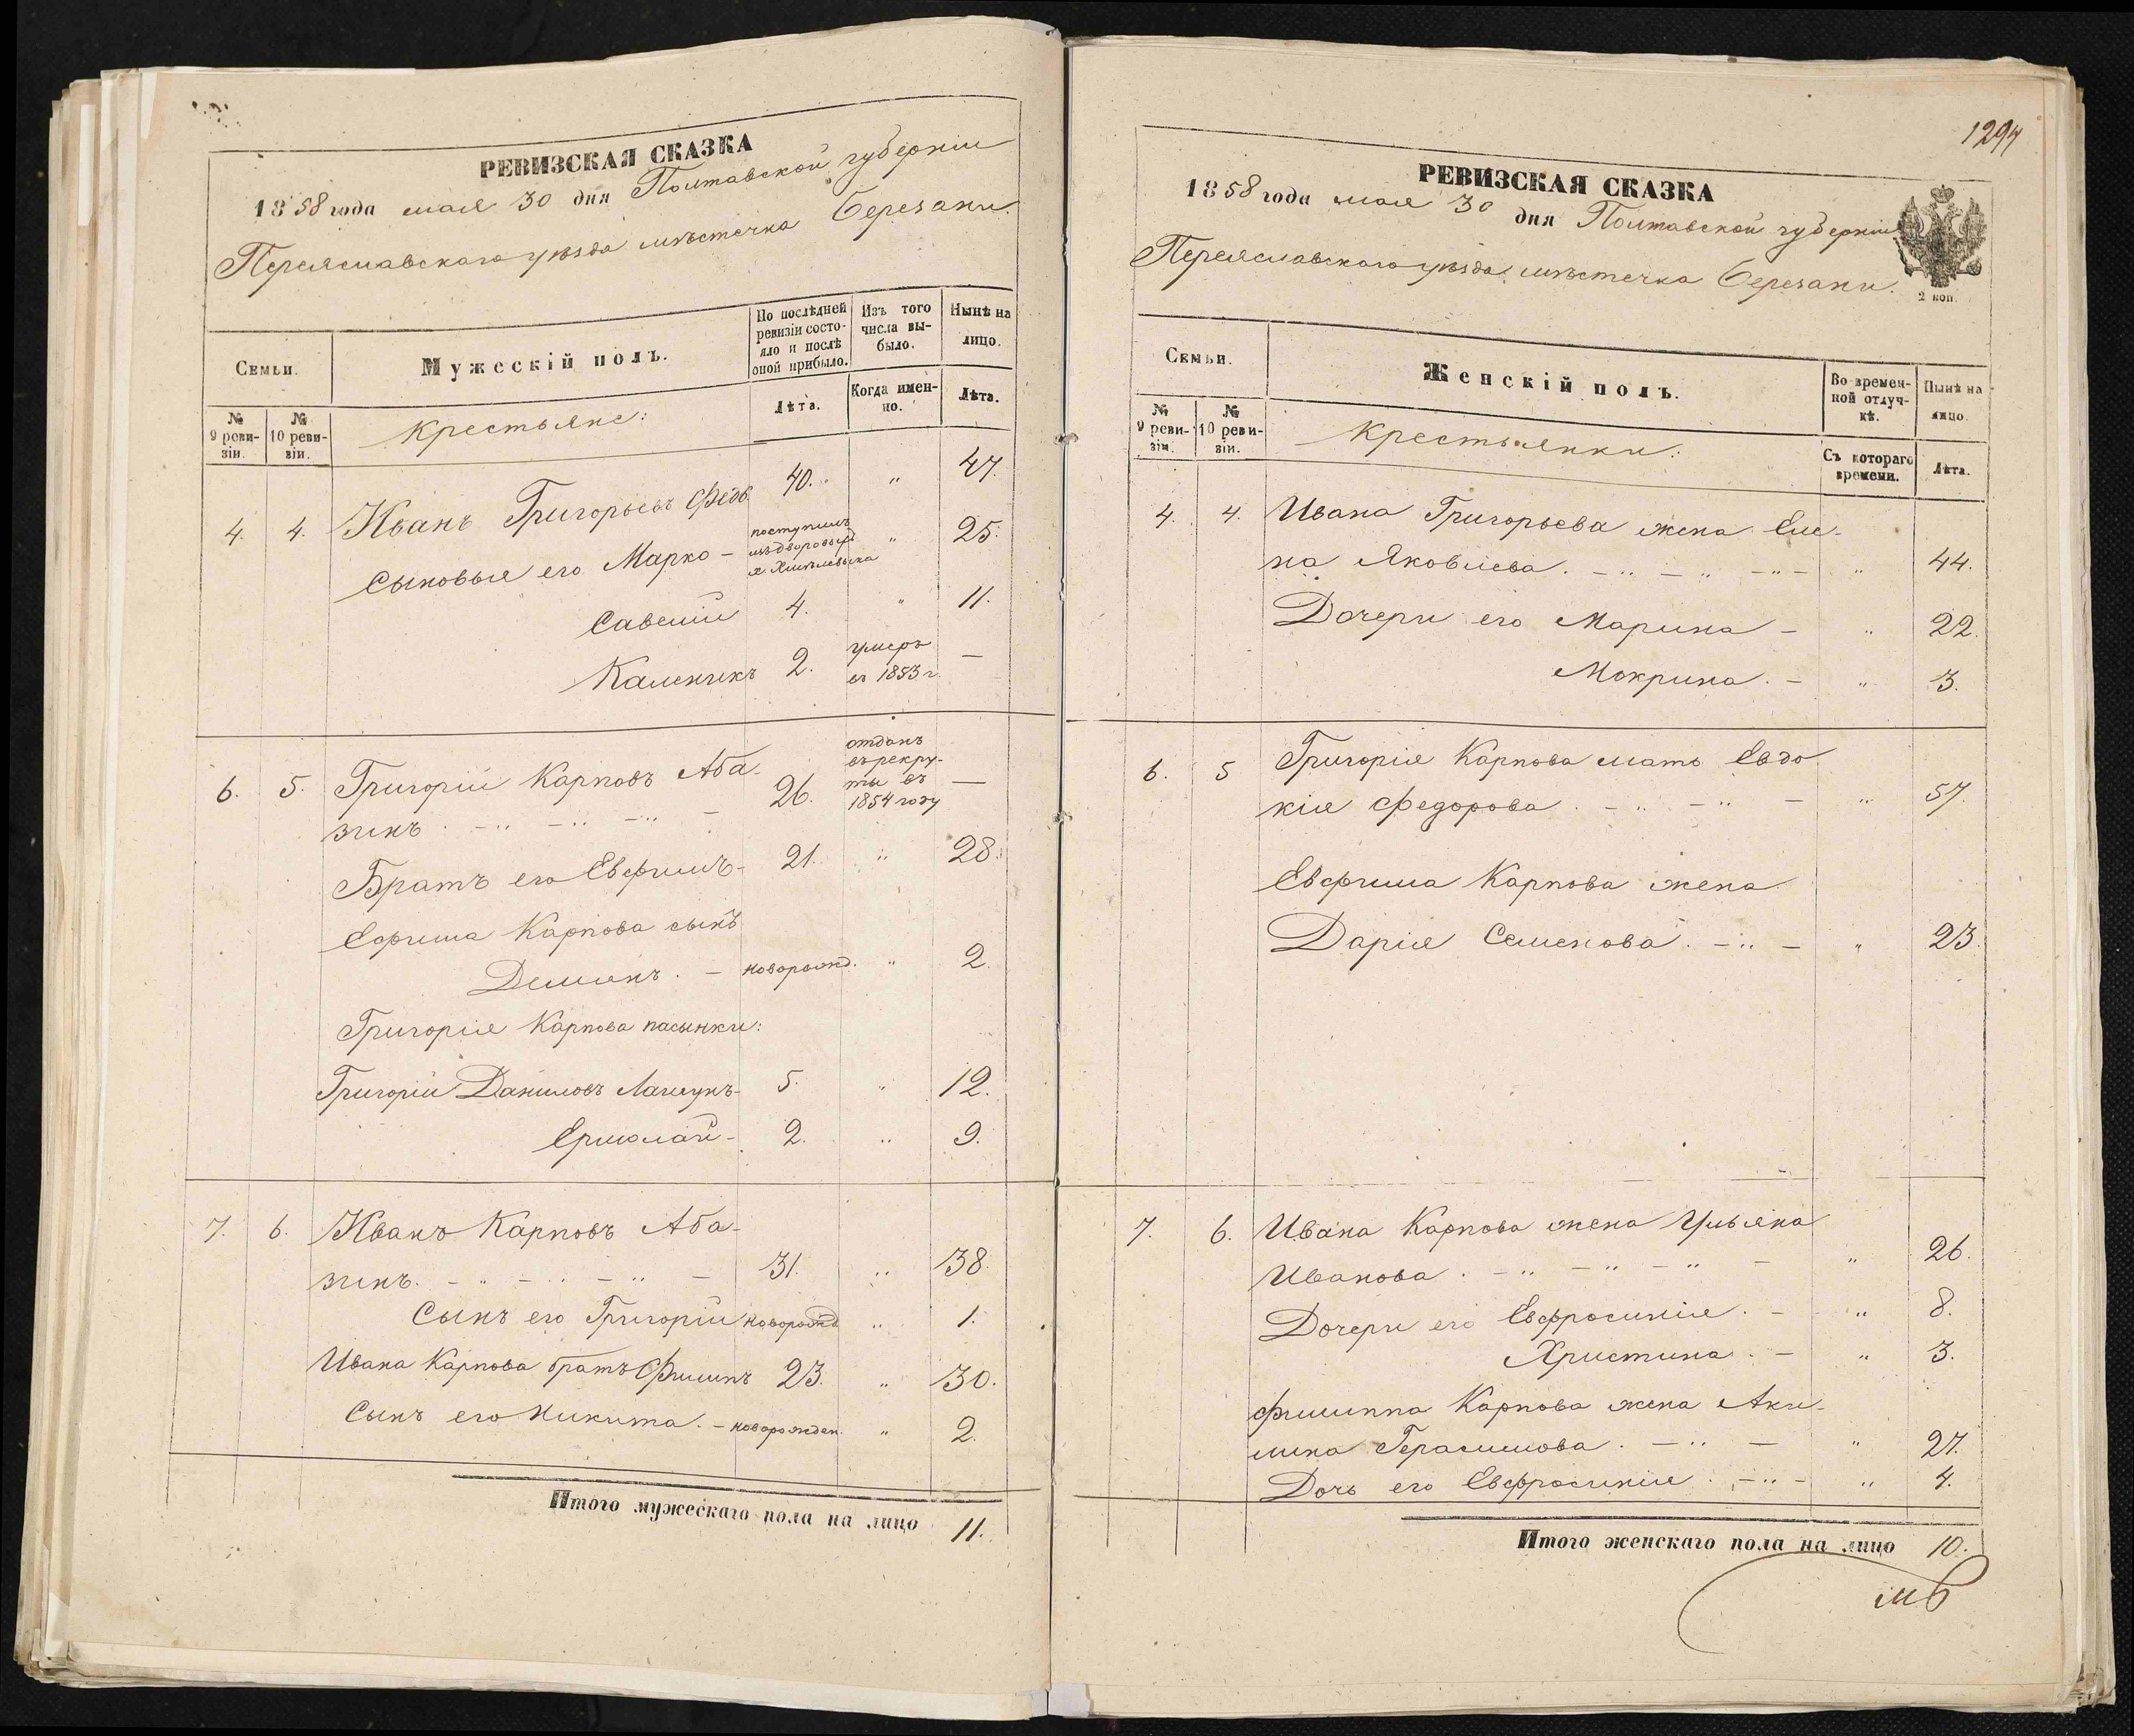 РЕВИЗСКАЯ СКАЗКА
1858 года мая 30 дня Полтавской губерніи
Переяславскаго уѣзда мѣстечка Березани.
Семьи.
Мужескій полъ.
По послѣдней ревизіи состояло и послѣ оной прибыло.
Изъ того числа выбыло.
Нынѣ на лицо.
№ 9 ревизіи.
№ 10 ревизіи.
Крестьяне:
Лѣта.
Когда именно.
Лѣта.
4. 4. Иванъ Григорьевъ Федо. 40. " 47.
Сыновья его Марко - поступилъ изъ дворовыхъ " 25.
Савелій 4. " 11.
Каленикъ 2. умеръ въ 1853 г. —
6. 5. Григорій Карповъ Аба-
зинъ. - " - " - " - 26. отданъ въ рекруты въ 1854 году —
Братъ его Евфимъ - 21. " 28.
Ефима Карпова сынъ
Демьянъ. - новорожд. " 2.
Григорія Карпова пасынки:
Григорій Даниловъ - 5. " 12.
Ермолай - 2. " 9.
7. 6. Иванъ Карповъ Аба-
зинъ. - " - " - " - 31. " 38.
Сынъ его Григорій новорожд " 1.
Ивана Карпова братъ Филипъ 23. " 30.
Сынъ его Никита. - новорожден. " 2.
Итого мужескаго пола на лицо 11.
1294
РЕВИЗСКАЯ СКАЗКА
1858 года мая 30 дня Полтавской губерніи
Переяславскаго уѣзда мѣстечка Березани.
2 коп.
Семьи.
Женскій полъ.
Во временной отлучкѣ.
Нынѣ на лицо.
№ 9 ревизіи.
№ 10 ревизіи.
Крестьянки:
Съ котораго времени.
Лѣта.
4. 4. Ивана Григорьева жена Еле-
на Яковлева. - " - " - " - " 44.
Дочери его Марина - " 22.
Мокрина. - " 3.
6. 5 Григорія Карпова мать Евдо
кія Федорова. - " - " - " 57.
Евфима Карпова жена
Дарія Семенова. - " - " 23.
7. 6. Ивана Карпова жена Ульяна
Иванова. - " - " - " - " 26.
Дочери его Евфросинія. - " 8.
Христина. - " 3.
Филиппа Карпова жена Аки-
лина Герасимова. - " - " 27.
Дочь его Евфросинія. - " - " 4.
Итого женскаго пола на лицо 10.